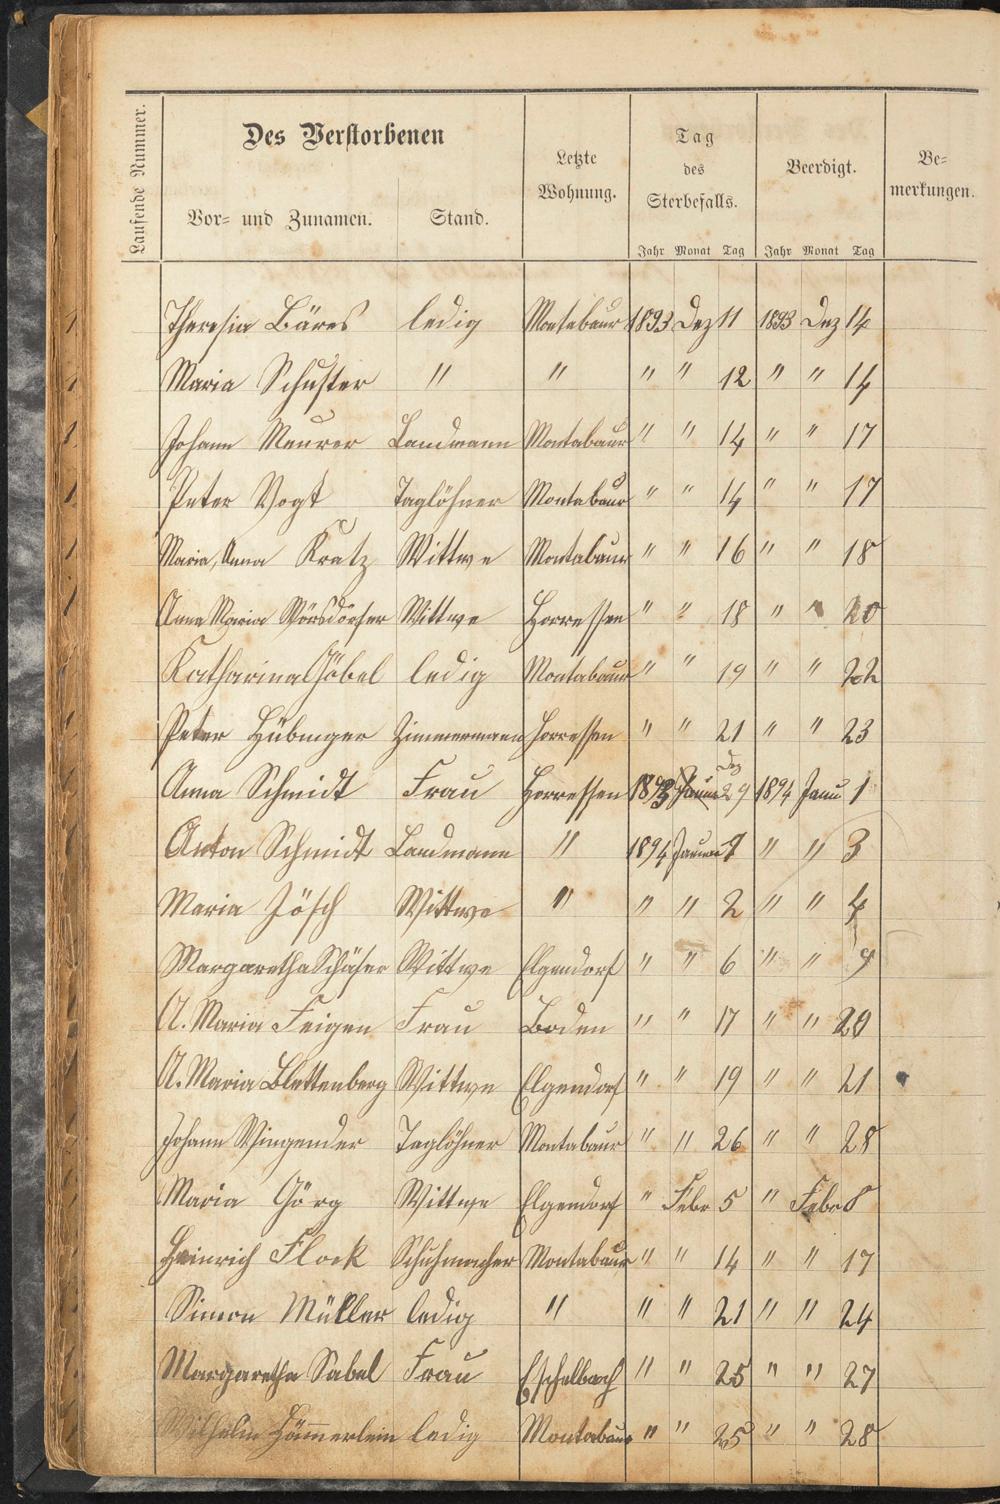 Laufende Nummer.
Des Verstorbenen
Vor- und Zunamen. Stand.
Letzte Wohnung.
Tag des Sterbefalls.
Beerdigt.
Be-
merkungen.
Jahr Monat Tag Jahr Monat Tag
1. Theresia Bäres ledig Montabaur 1893 Dez 11 1893 Dez 14
1 Maria Schuster " " " " 12 " " 14
1. Johann Meurer Landmann Montabaur " " 14 " " 17
1. Peter Vogt Taglöhner Montabaur " " 14 " " 17
1. Maria, Anna Kratz Wittwe Montabaur " " 16 " " 18
1. Anna Maria Wörsdörfer Wittwe Horressen " " 18 " " 20
1. Katharina Göbel ledig Montabaur " " 19 " " 22
1 Peter Hübinger Zimmermann Horressen " " 21 " " 23
1 Anna Schmidt Frau Horressen 1893 Dez 29 1894 Janu 1
1 Anton Schmidt Landmann " 1894 Januar " " 3
1 Maria Jösch Wittwe " " " 2 " " 4
1 Margaretha Schäfer Wittwe Elgendorf " " 6 " " 9
1 A. Maria Feigen Frau Boden " " 17 " " 20
1 A. Maria Blettenberg Wittwe Elgendorf " " 19 " " 21
1 Johann Wingender Taglöhner Montabaur " " 26 " " 28
1 Maria Görg Wittwe Elgendorf " Febr 5 " Febr 8
1 Heinrich Flock Schuhmacher Montabaur " " 14 " " 17
1 Simon Müller ledig " " " 21 " " 24
1. Margaretha Sabel Frau Eschelbach " " 25 " " 27
1 Wilhelm Hämmerlein ledig Montabaur " " 25 " " 28